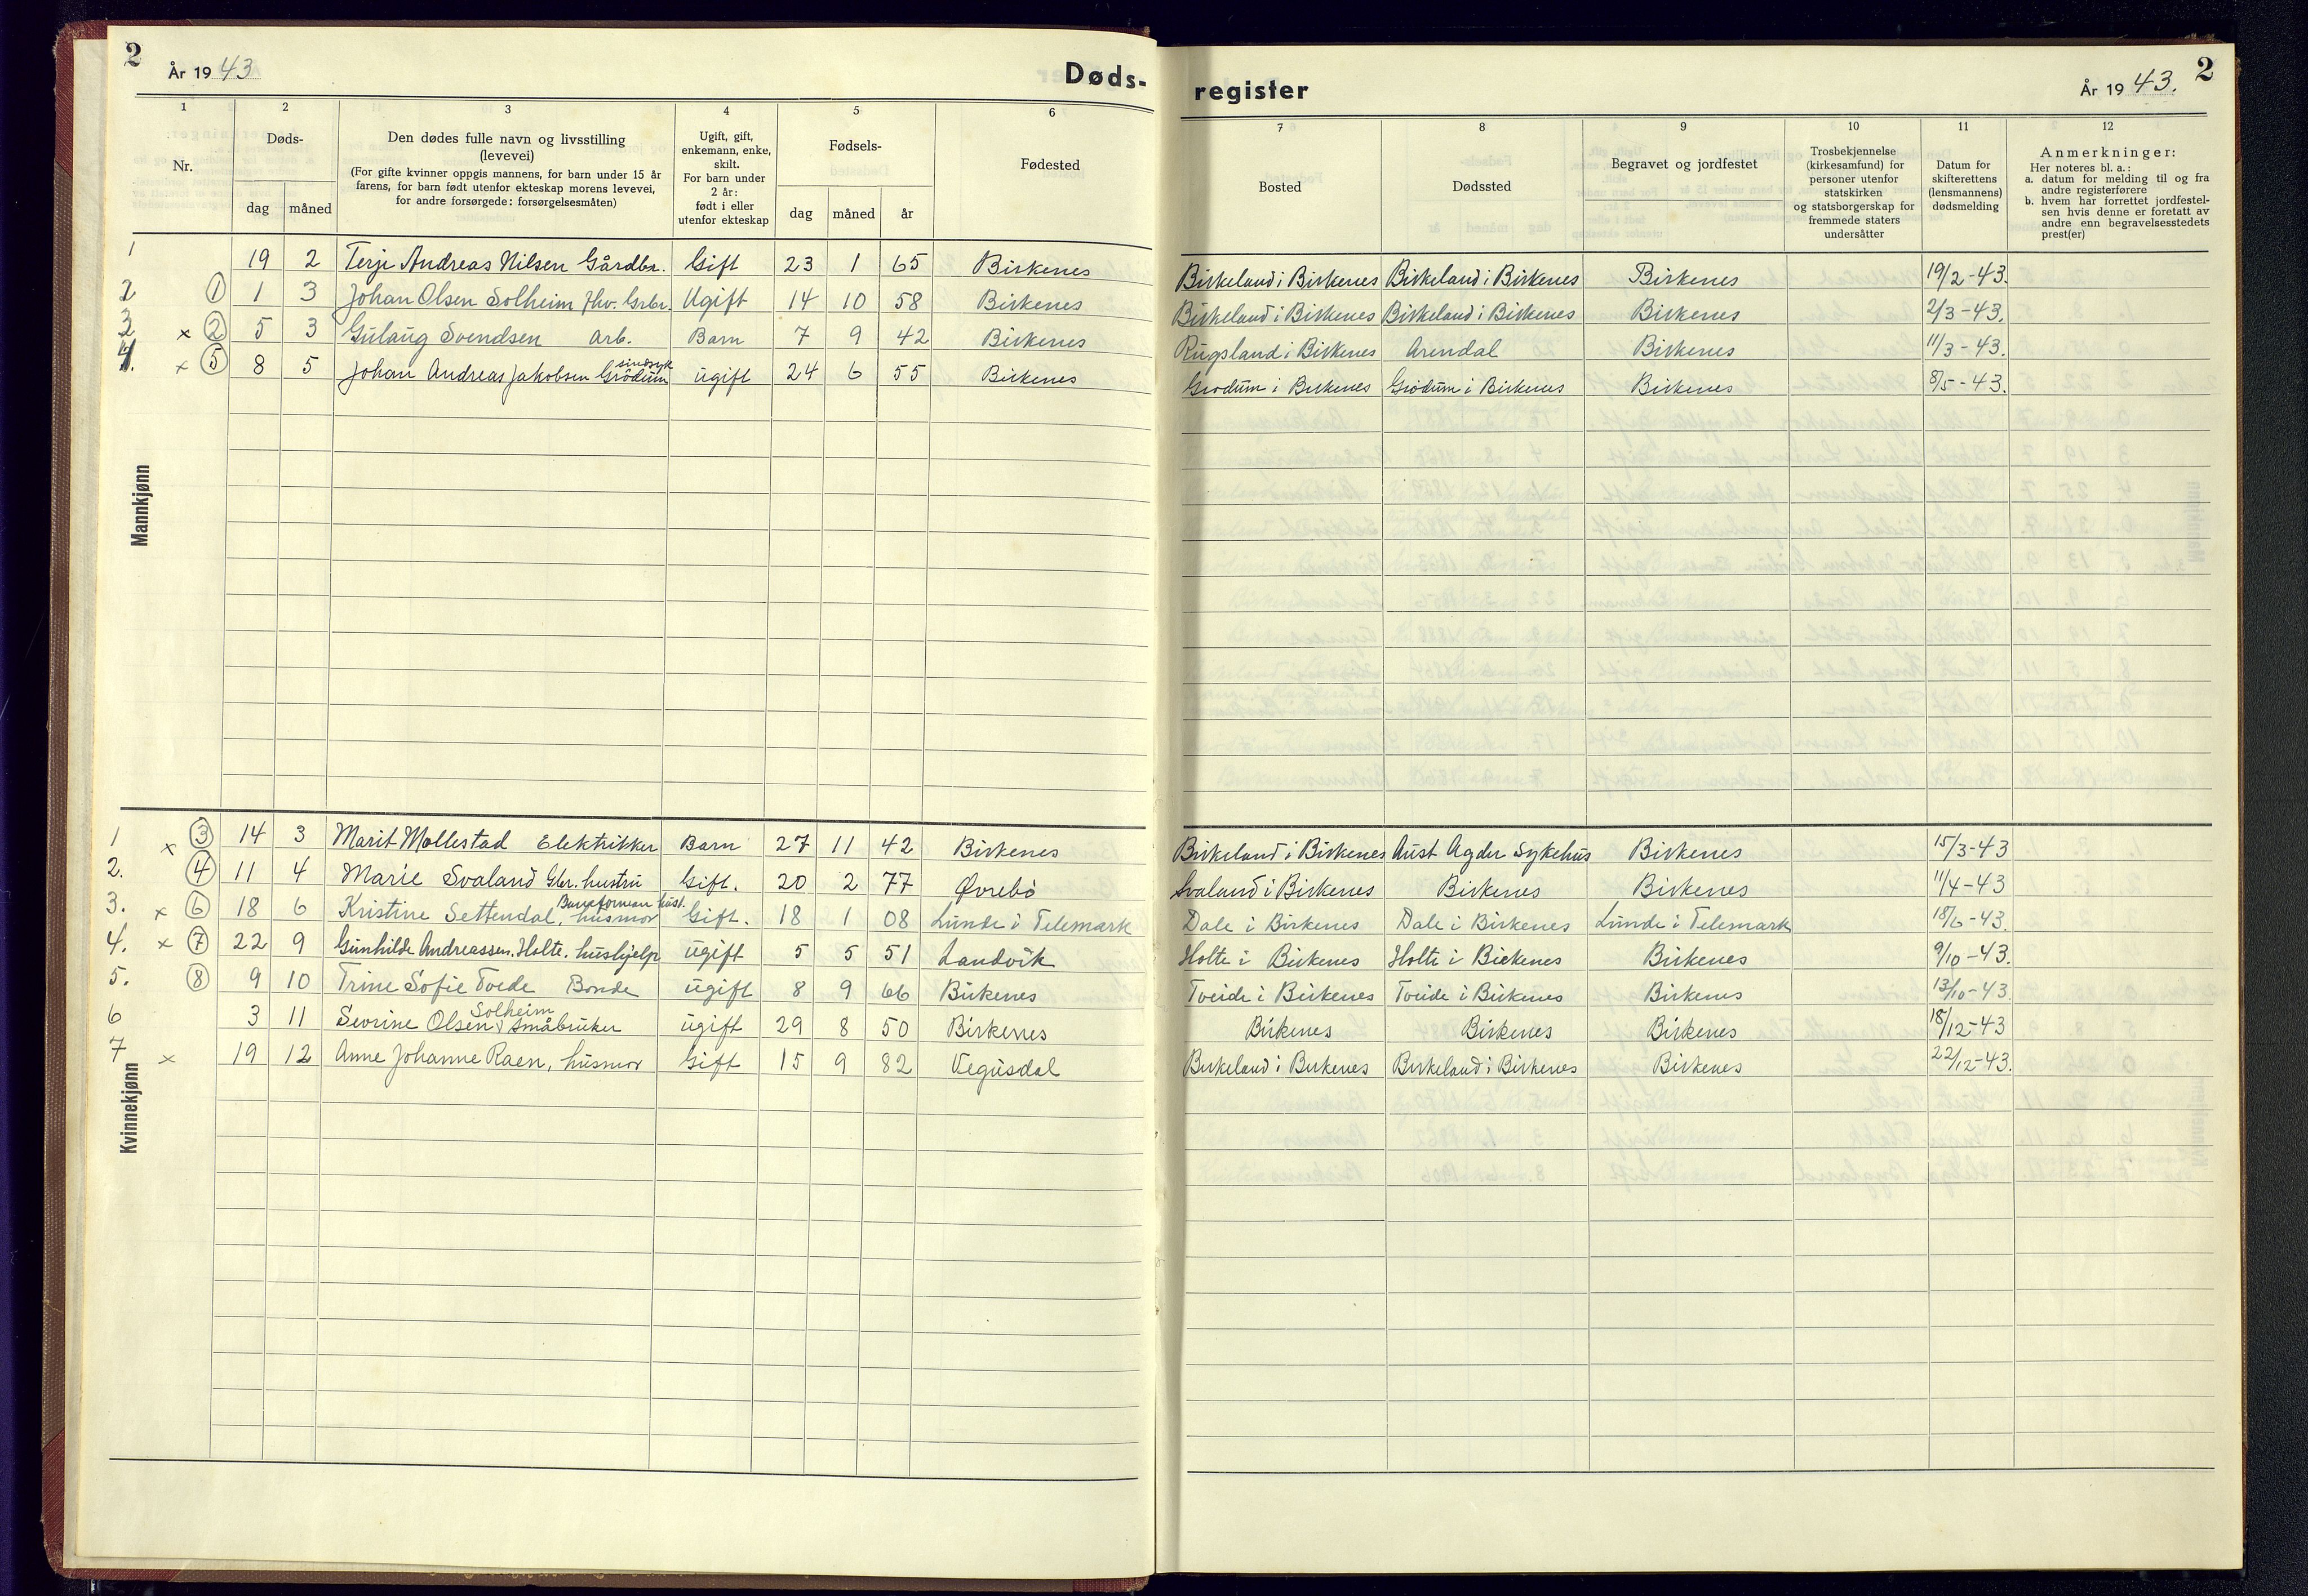 2
År 1943
Døds-
1 2 3 4 5 6
Nr.
Døds-
dag måned
Den dødes fulle navn og livsstilling
(levevei)
(For gifte kvinner oppgis mannens, for barn under 15 år
farens, for barn født utenfor ekteskap morens levevei,
for andre forsørgede: forsørgelsesmåten)
Ugift, gift,
enkemann, enke,
skilt.
For barn under
2 år:
født i eller
utenfor ekteskap
Fødsels-
dag måned år
Fødested
Mannkjønn
1 19 2 Terje Andreas Nilsen Gårdbr. Gift 23 1 65 Birkenes
2 ① 1 3 Johan Olsen Solheim Fhv. Grbr. Ugift 14 10 58 Birkenes
3 x ② 5 3 Gulaug Svendsen Arb. Barn 7 9 42 Birkenes
sindssyk
4. x ⑤ 8 5 Johan Andreas Jakobsen Grødum ugift 24 6 55 Birkenes
Kvinnekjønn
1 x ③ 14 3 Marit Mollestad Elektrikker Barn 27 11 42 Birkenes
2. ④ 11 4 Marie Svaland Gbr. hustru Gift. 20 2 77 Øvrebø
3. x ⑥ 18 6 Kristine Settendal, husmor Gift. 18 1 08 Lunde i Telemark
4. x ⑦ 22 9 Gunhilde Andreassen. Holte. hushjelp ugift 5 5 51 Landvik
5. ⑧ 9 10 Trine Sofie Tveide Bonde ugift 8 9 66 Birkenes
Solheim
6 3 11 Sevrine Olsen v småbruker ugift 29 8 50 Birkenes
7 x 19 12 Anne Johanne Raen, husmor Gift 15 9 82 Vegusdal
register
År 1943.
2
7 8 9 10 11 12
Bosted
Dødssted
Begravet og jordfestet
Trosbekjennelse
(kirkesamfund) for
personer utenfor
statskirken
og statsborgerskap for
fremmede staters
undersåtter
Datum for
skifterettens
(lensmannens)
dødsmelding
Anmerkninger:
Her noteres bl. a.:
a. datum for melding til og fra
andre registerførere
b. hvem har forrettet jordfestel-
sen hvis denne er foretatt av
andre enn begravelsesstedets
prest(er)
Birkeland i Birkenes Birkeland i Birkenes Birkenes 19/2-43.
Birkeland i Birkenes Birkeland i Birkenes Birkenes 2/3-43.
Rugsland i Birkenes Arendal Birkenes 11/3-43.
Grødum i Birkenes Grødum i Birkenes Birkenes 8/5-43.
Birkeland i Birkenes Aust Agder Sykehus Birkenes 15/3-43
Svaland i Birkenes Birkenes Birkenes 11/4-43
Dale i Birkenes Dale i Birkenes Lunde i Telemark 18/6-43.
Holte i Birkenes Holte i Birkenes Birkenes 9/10-43.
Tveide i Birkenes Tveide i Birkenes Birkenes 13/10-43.
Birkenes Birkenes Birkenes 18/12-43
Birkeland i Birkenes Birkeland i Birkenes Birkenes 22/12-43.